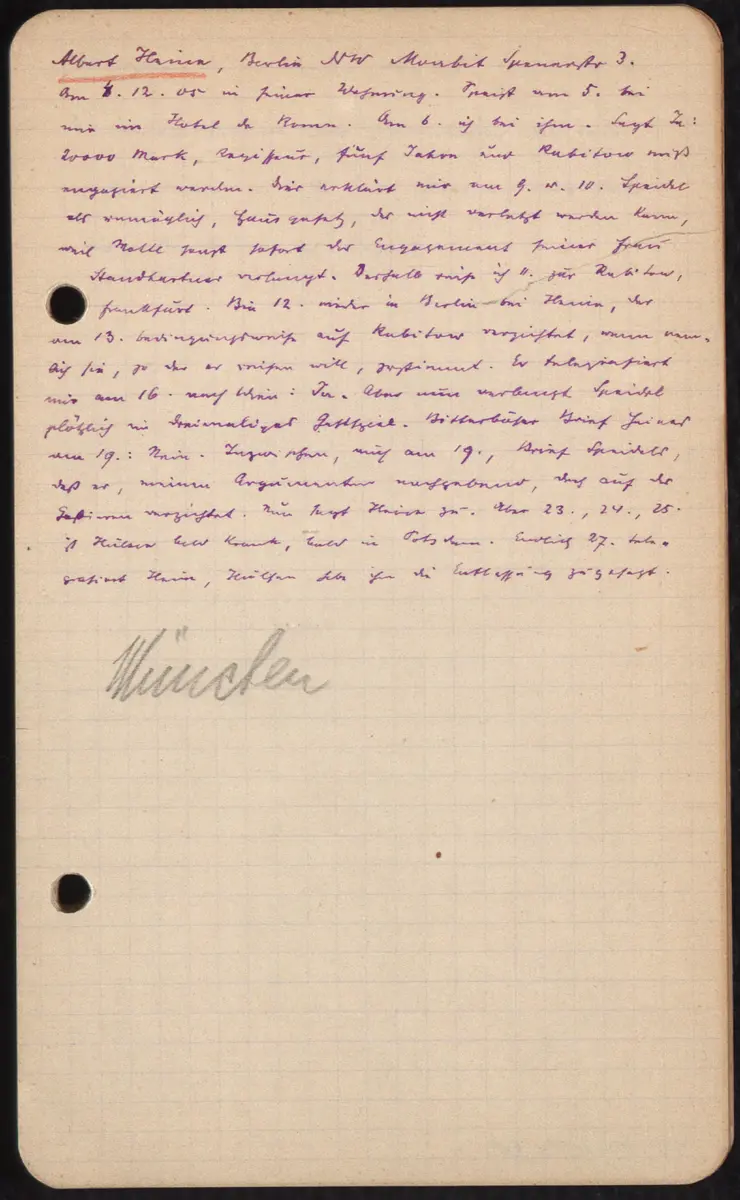 Albert Heine, Berlin NW Moabit Spenerstr 3.
Am 6. 12. 05 in seiner Wohnung. Speist am 5. bei
mir im Hotel de Rome. Am 6. ich bei ihm. Sagt Ja:
20000 Mark, Regisseur, fünf Jahre und Rabitow muß
engagiert werden. Dies erklärt mir am 9. u. 10. Speidel
als unmöglich, Hausgesetz, das nicht verletzt werden kann,
weil sonst sofort das Engagement seiner Frau
verlangt. Deshalb reise ich 11. zur Rabitow,
Frankfurt. Bin 12. wieder in Berlin bei Heine, der
am 13. bedingungsweise auf Rabitow verzichtet, wenn nem-
lich sie, zu der er reisen will, zustimmt. Er telegrafiert
mir am 16. nach Wien: Ja. Aber nun verlangt Speidel
plötzlich ein dreimaliges Gastspiel. Bitterböser Brief Heines
am 19.: Nein. Inzwischen, auch am 19., Brief Speidels,
daß er, meinen Argumenten nachgebend, doch auf das
Gastieren verzichtet. Nun sagt Heine zu. Aber 23., 24., 25.
ist Hülsen bald krank, bald in Potsdam. Endlich 27. tele-
grafiert Heine, Hülsen habe ihm die Entlassung zugesagt.
München